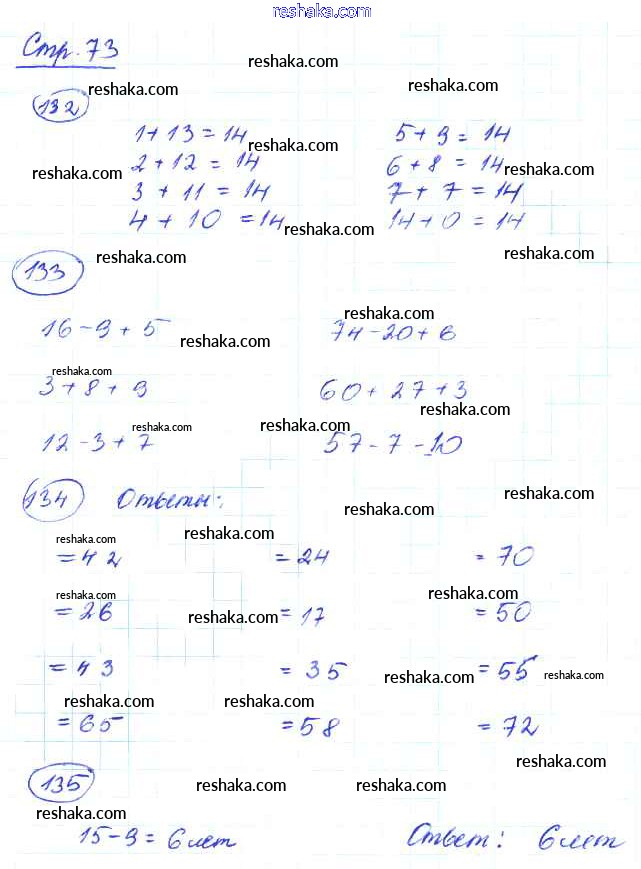 reshaka.com
Стр. 73
reshaka.com
reshaka.com
reshaka.com
132
1+13=14
5+9=14
reshaka.com
2+12=14
6+8=14
reshaka.com
reshaka.com
3+11=14
7+7=14
4+10=14
14+0=14
reshaka.com
reshaka.com
reshaka.com
133
reshaka.com
16-9+5
74-20+6
reshaka.com
reshaka.com
3+8+9
60+27+3
reshaka.com
12-3+7
57-7-10
reshaka.com
reshaka.com
134 Ответы:
reshaka.com
reshaka.com
reshaka.com
reshaka.com
=42
=24
=70
reshaka.com
reshaka.com
=26
=17
=50
reshaka.com
=43
=35
=55
reshaka.com
reshaka.com
reshaka.com
reshaka.com
=65
=58
=72
reshaka.com
135
reshaka.com
reshaka.com
reshaka.com
15-9=6 лет
Ответ: 6 лет